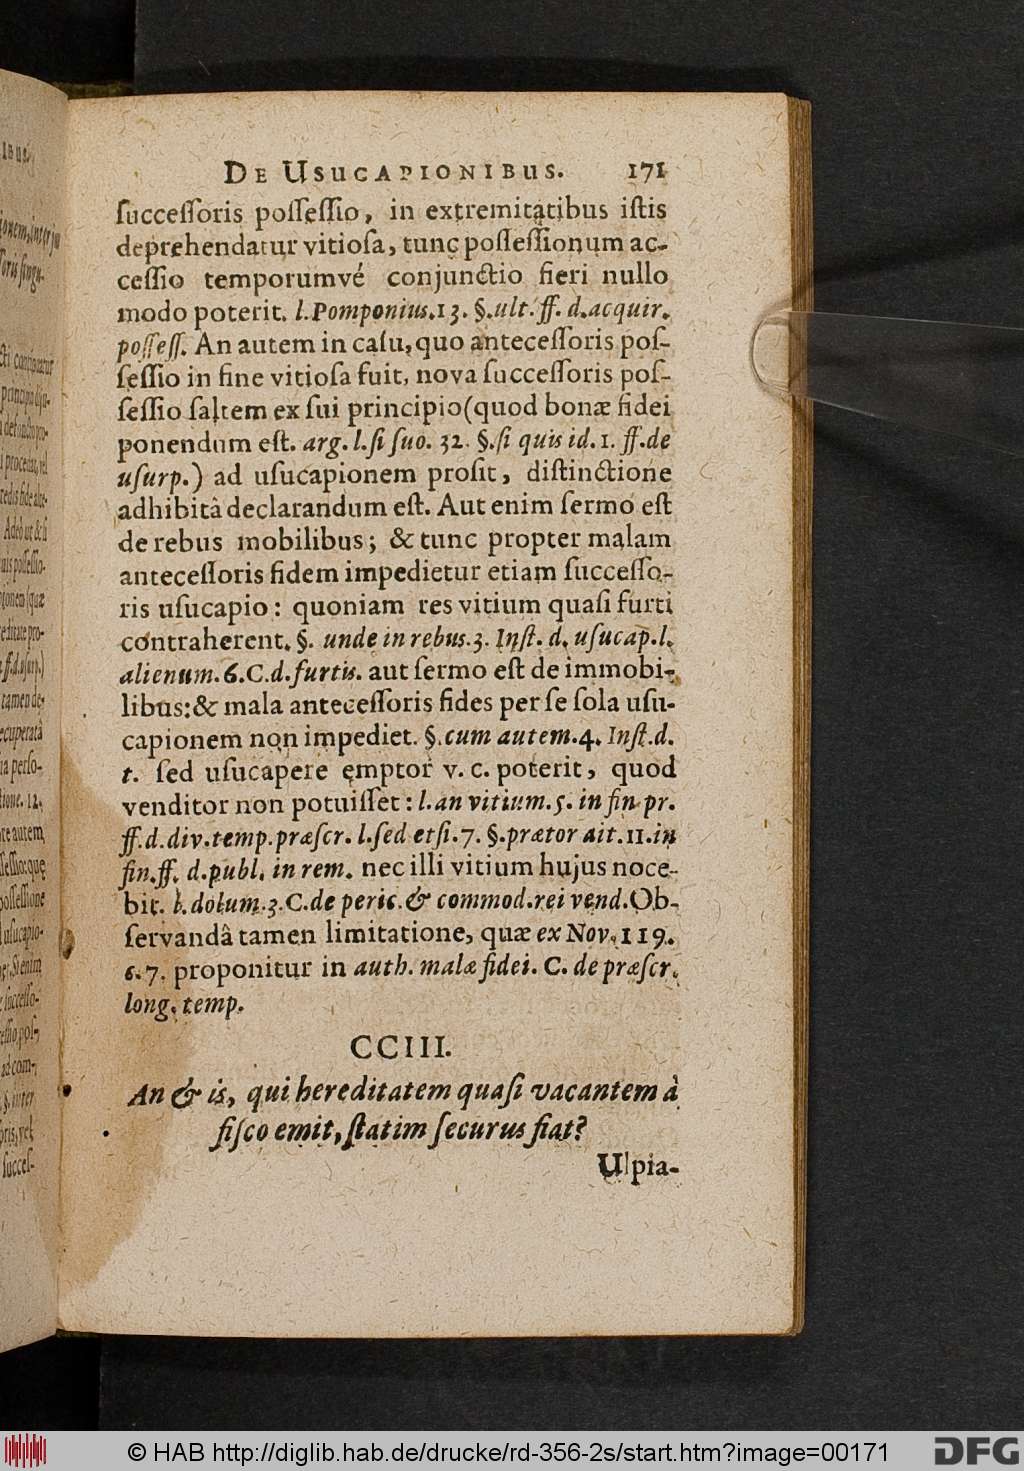 DE USUCAPIONIBUS. 171
ſucceſſoris poſſeſſio, in extremitatibus iſtis
deprehendatur vitioſa, tunc poſſeſſionum ac-
ceſſio temporumvé conjunctio fieri nullo
modo poterit. l. Pomponius.13. §.ult. ff. d.acquir.
poſſeſſ. An autem in caſu, quo anteceſſoris poſ-
ſeſſio in fine vitioſa fuit, nova ſucceſſoris poſ-
ſeſſio ſaltem ex ſui principio (quod bonæ fidei
ponendum eſt. arg. l. ſi ſuo. 32. §. ſi quis id. 1. ff. de
uſurp.) ad uſucapionem proſit, diſtinctione
adhibitâ declarandum eſt. Aut enim ſermo eſt
de rebus mobilibus; & tunc propter malam
anteceſſoris fidem impedietur etiam ſucceſſo-
ris uſucapio: quoniam res vitium quaſi furti
contraherent. §. unde in rebus.3. Inſt. d. uſucap. l.
alienum. 6. C. d. furtis. aut ſermo eſt de immobi-
libus: & mala anteceſſoris fides per ſe ſola uſu-
capionem non impediet. §. cum autem.4. Inſt. d.
t. ſed uſucapere emptor v. c. poterit, quod
venditor non potuiſſet: l. an vitium. 5. in fin. pr.
ff. d. div. temp. præſcr. l. ſed etſi. 7. §. prætor ait. 11. in
fin. ff. d. publ. in rem. nec illi vitium hujus noce-
bit. l. dolum. 3. C. de peric. & commod. rei vend. Ob-
ſervandâ tamen limitatione, quæ ex Nov. 119.
6. 7. proponitur in auth. malæ fidei. C. de præſcr.
long. temp.
CCIII.
An & is, qui hereditatem quaſi vacantem à
fiſco emit, ſtatim ſecurus fiat?
Ulpia-
© HAB http://diglib.hab.de/drucke/rd-356-2s/start.htm?image=00171
DFG